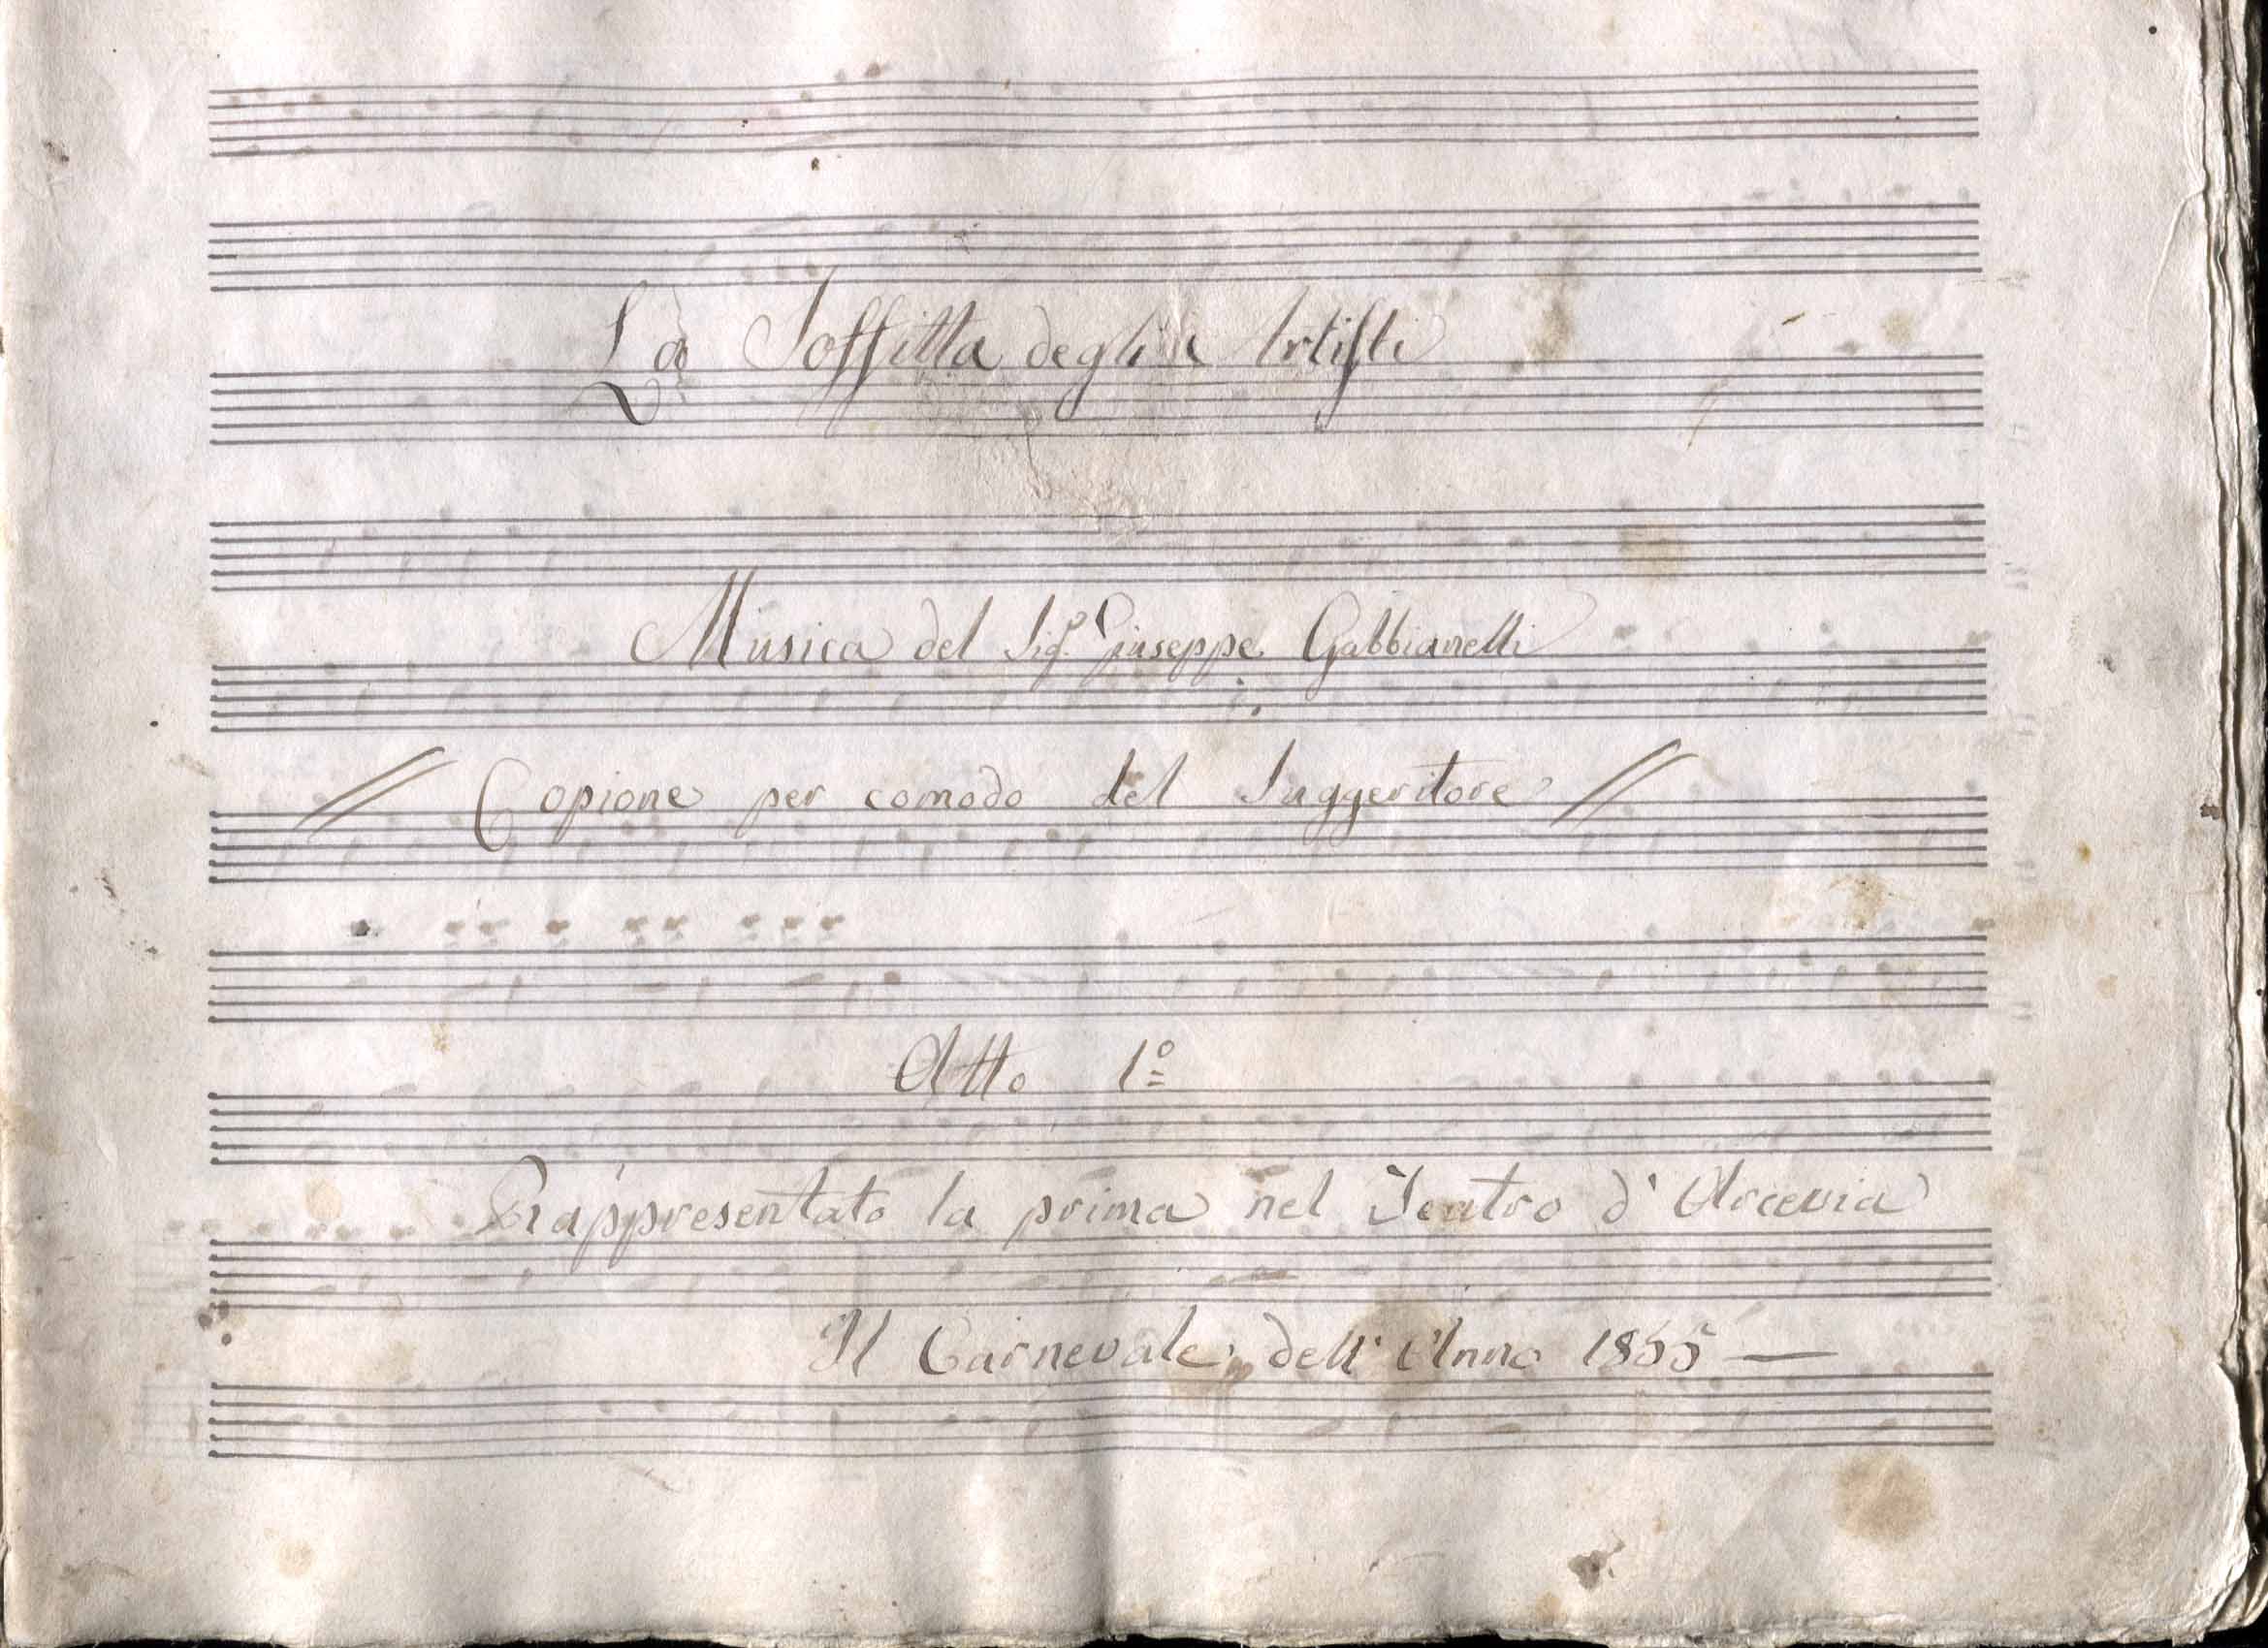 La Soffitta degli Artisti
Musica del Sig.r Giuseppe Gabbianelli
Copione per comodo del Suggeritore
Atto 1º
Rappresentato la prima nel Teatro d'Arcevia
Il Carnevale dell'Anno 1855 —